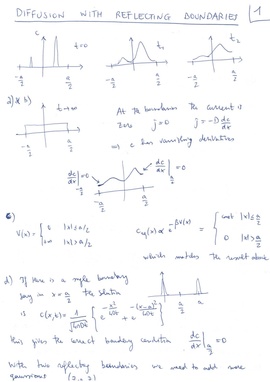 DIFFUSION WITH REFLECTING BOUNDARIES 1
c t=0 t₁ t₂
-a/2 a/2 -a/2 a/2 -a/2 a/2
a) & b) t→∞ At the boundaries the current is
zero j=0 j=-D dc/dx
-a/2 a/2 ⇒ c has vanishing derivatives
dc/dx|=0 dc/dx|=0
-a/2 a/2
c)
V(x)= { 0 |x|≤a/2 ∞ |x|>a/2 C_eq(x) ∝ e^{-βV(x)} = { const |x|≤a/2 0 |x|>a/2
which matches the result above
d) If there is a single boundary
say in x=a/2 the solution
is C(x,t)= 1/√(4πDt) [ e^{-x²/4Dt} + e^{-(x-a)²/4Dt} ] a/2 a
this gives the correct boundary condition dc/dx|_{a/2}=0
With two reflecting boundaries we need to add more
gaussians